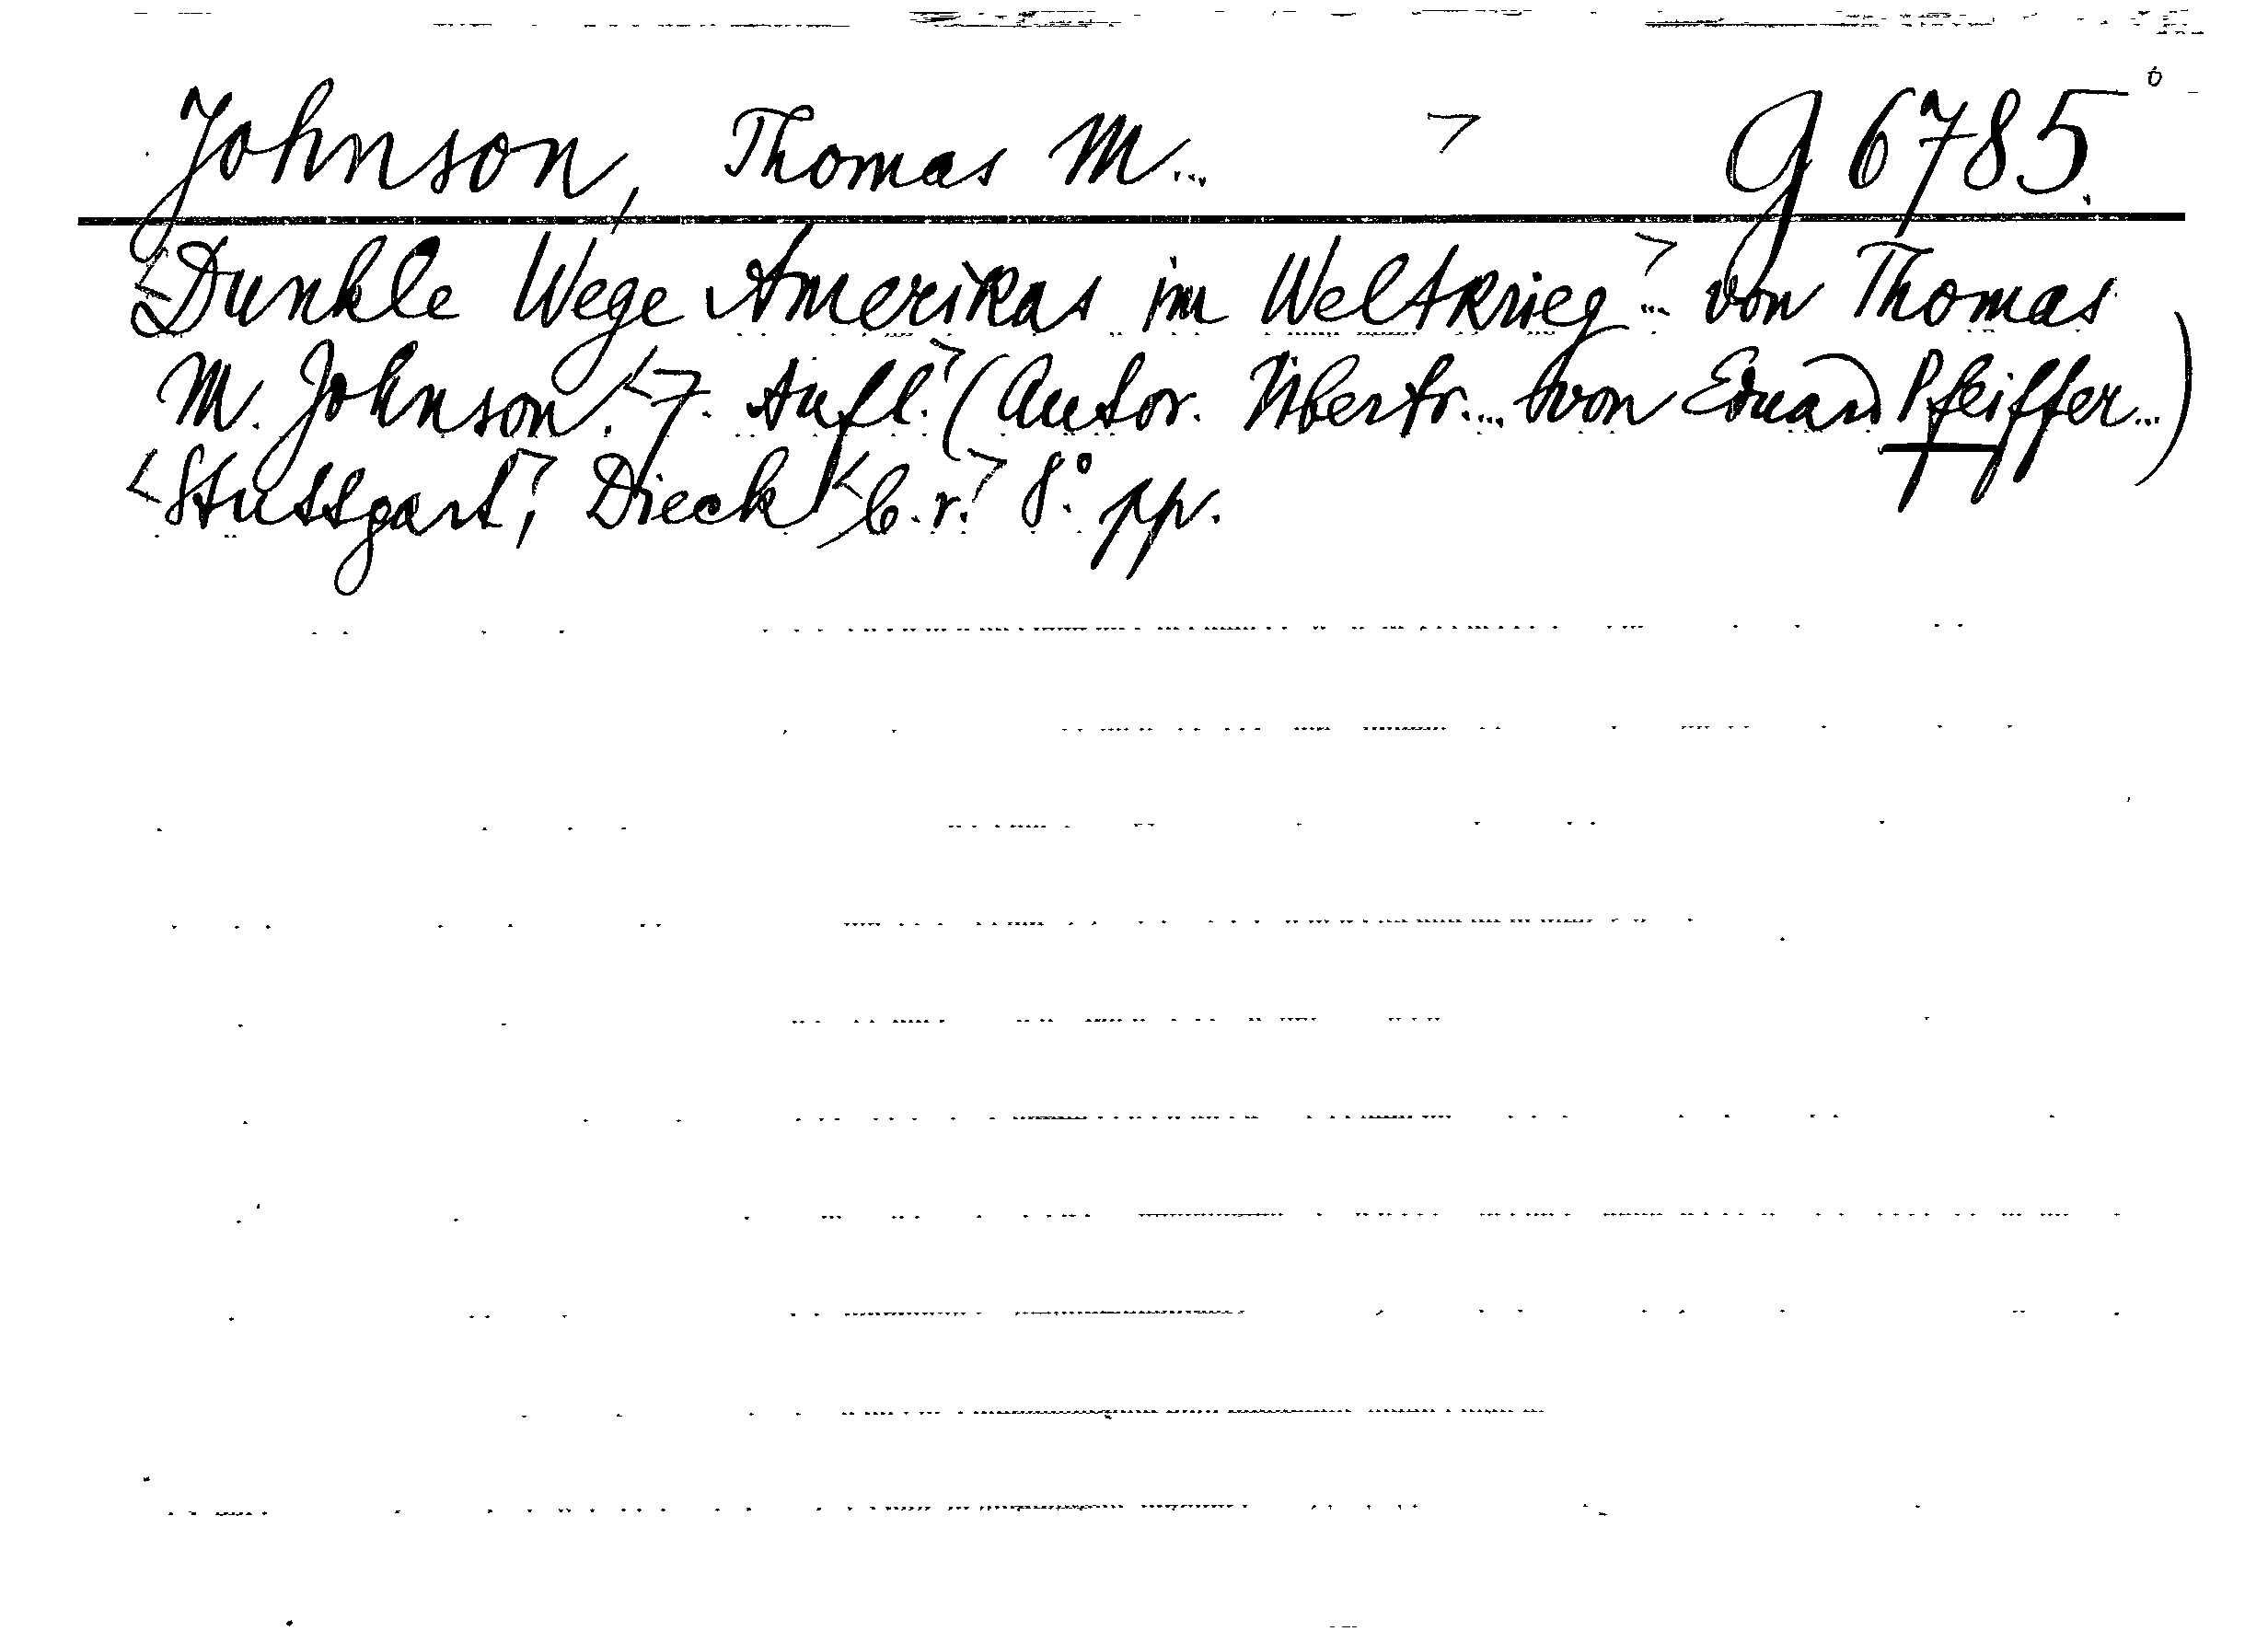 Johnson, Thomas M... > G 6785.
<Dunkle Wege Amerikas im Weltkrieg>... von Thomas
M. Johnson. <7. Aufl.> (Autor. Übertr.... von Eduard Pfeiffer...)
<Stuttgart>, Dieck <b. r.> 8° pp.